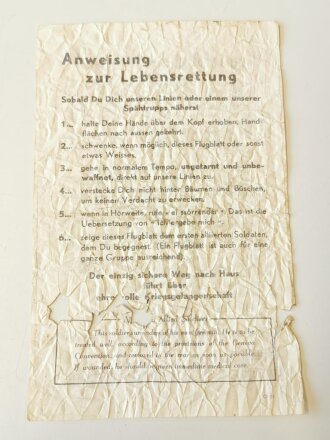 Anweisung
zur Lebensrettung
Sobald Du Dich unseren Linien oder einem unserer
Spähtrupps näherst
1... halte Deine Hände über dem Kopf erhoben, Hand-
flächen nach aussen gekehrt.
2... schwenke, wenn möglich, dieses Flugblatt oder sonst
etwas Weisses.
3... gehe in normalem Tempo, ungetarnt und unbe-
waffnet, direkt auf unsere Linien zu.
4... verstecke Dich nicht hinter Bäumen und Büschen,
um keinen Verdacht zu erwecken.
5... wenn in Hörweite, rufe « ei sörrender ». Das ist die
Uebersetzung von « Ich ergebe mich ».
6... zeige dieses Flugblatt dem ersten alliierten Soldaten,
dem Du begegnest. (Ein Flugblatt ist auch für eine
ganze Gruppe ausreichend).
Der einzig sichere Weg nach Haus
führt über
ehrenvolle Kriegsgefangenschaft
Allied Soldiers
This soldier surrenders of his own free will. He is to be
treated well, according to the provisions of the Geneva
Convention, and removed to the rear as soon as possible.
If wounded, he should be given immediate medical care.